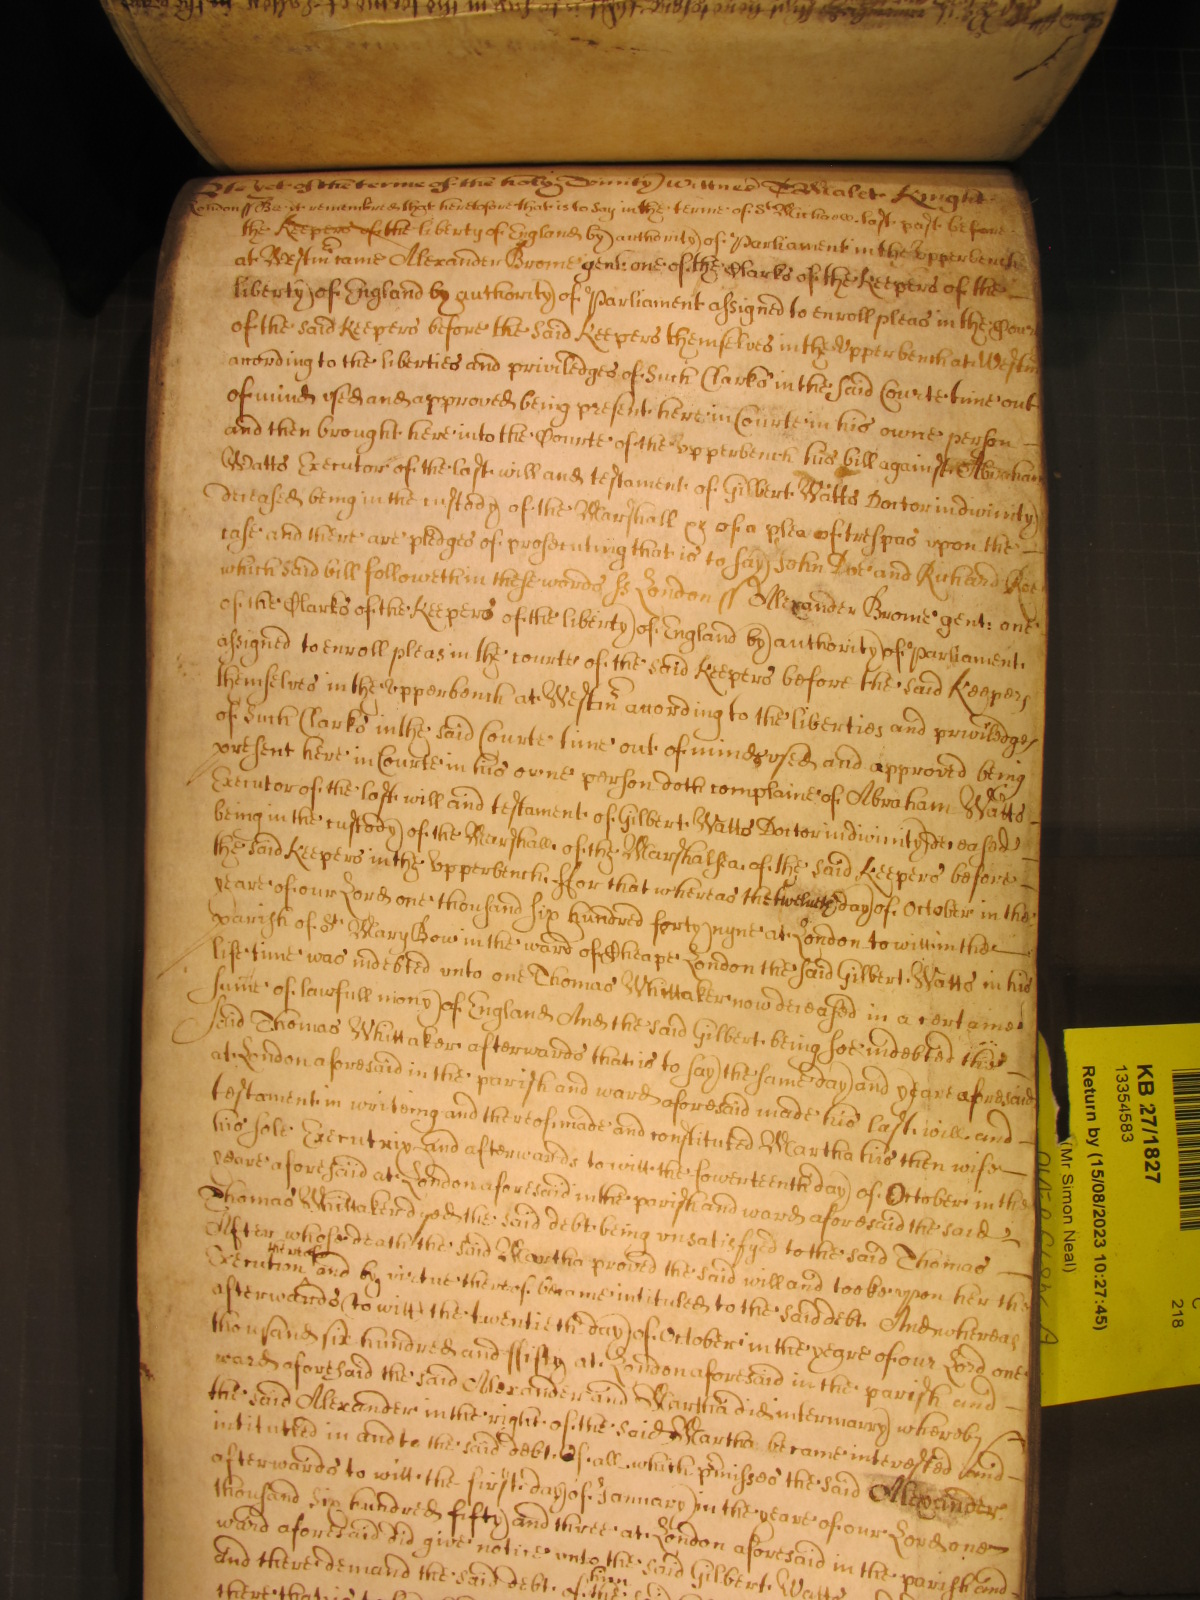 Yet of the terme of the holy Trinity Wittnes Malet Knight
London ss Be it remembred that heretofore that is to say in the terme of St Michaell last past before
the Keepers of the liberty of England by authority of Parliament in the Upper bench
at Westm came Alexander Brome gent: one of the Clarks of the Keepers of the
liberty of England by authority of Parliament assigned to enroll pleas in the Court
of the said Keepers before the said Keepers themselves in the Upper bench at Westm
according to the liberties and priviledges of such Clarks in the said Courte time out
of mind used and approved being present here in Courte in his owne person
and then brought here into the Courte of the Upperbench his bill against Abraham
Watts Executor of the last will and testament of Gilbert Watts Doctor in divinity
deceased being in the custody of the Marshall &c of a plea of trespas upon the
case and there are pledges of prosecuting that is to say John Doe and Richard Roe
which said bill followeth in these words ss London ss Alexander Brome gent: one
of the Clarks of the Keepers of the liberty of England by authority of Parliament
assigned to enroll pleas in the courte of the said Keepers before the said Keepers
themselves in the Upperbench at Westm according to the liberties and priviledges
of such Clarks in the said Courte time out of mind used and approved being
present here in Courte in his owne person doth complaine of Abraham Watts
Executor of the last will and testament of Gilbert Watts Doctor in divinity deceased
being in the custody of the Marshall of the Marshalsea of the said Keepers before
the said Keepers in the Upperbench ffor that whereas the twelveth day of October in the
yeare of our Lord one thousand six hundred forty nyne at London to witt in the
parish of St Mary Bow in the ward of Cheape London the said Gilbert Watts in his
life time was indebted unto one Thomas Whittaker now deceased in a certaine
sume of lawfull mony of England And the said Gilbert being soe indebted the
said Thomas Whittaker afterwards that is to say the same day and yeare aforesaid
at London aforesaid in the parish and ward aforesaid made his last will and
testament in writeing and thereof made and constituted Martha his then wife
his sole Executrix And afterwards to witt the sowenteenth day of October in the
yeare aforesaid at London aforesaid in the parish and ward aforesaid the said
Thomas Whittaker dyed the said debt being unsatisfyed to the said Thomas
After whose death the said Martha proved the said will and tooke upon her the
Execution thereof and by virtue thereof became intituled to the said debt And whereas
afterwards to witt the twentieth day of October in the yeare of our Lord one
thousand six hundred and ffifty at London aforesaid in the parish and
ward aforesaid the said Alexander and Martha did intermarry whereby
the said Alexander in the right of the said Martha became interested and
intituled in and to the said debt Of all which pmisses the said Alexander
afterwards to witt the first day of January in the yeare of our Lord one
thousand six hundred fifty and three at London aforesaid in the parish and
ward aforesaid did give notice unto the said Gilbert Watts
and there demand the said debt of him the said
there that is to
KB 27/1827
13354583
Return by (15/08/2023 10:27:45)
(Mr Simon Neal)
218